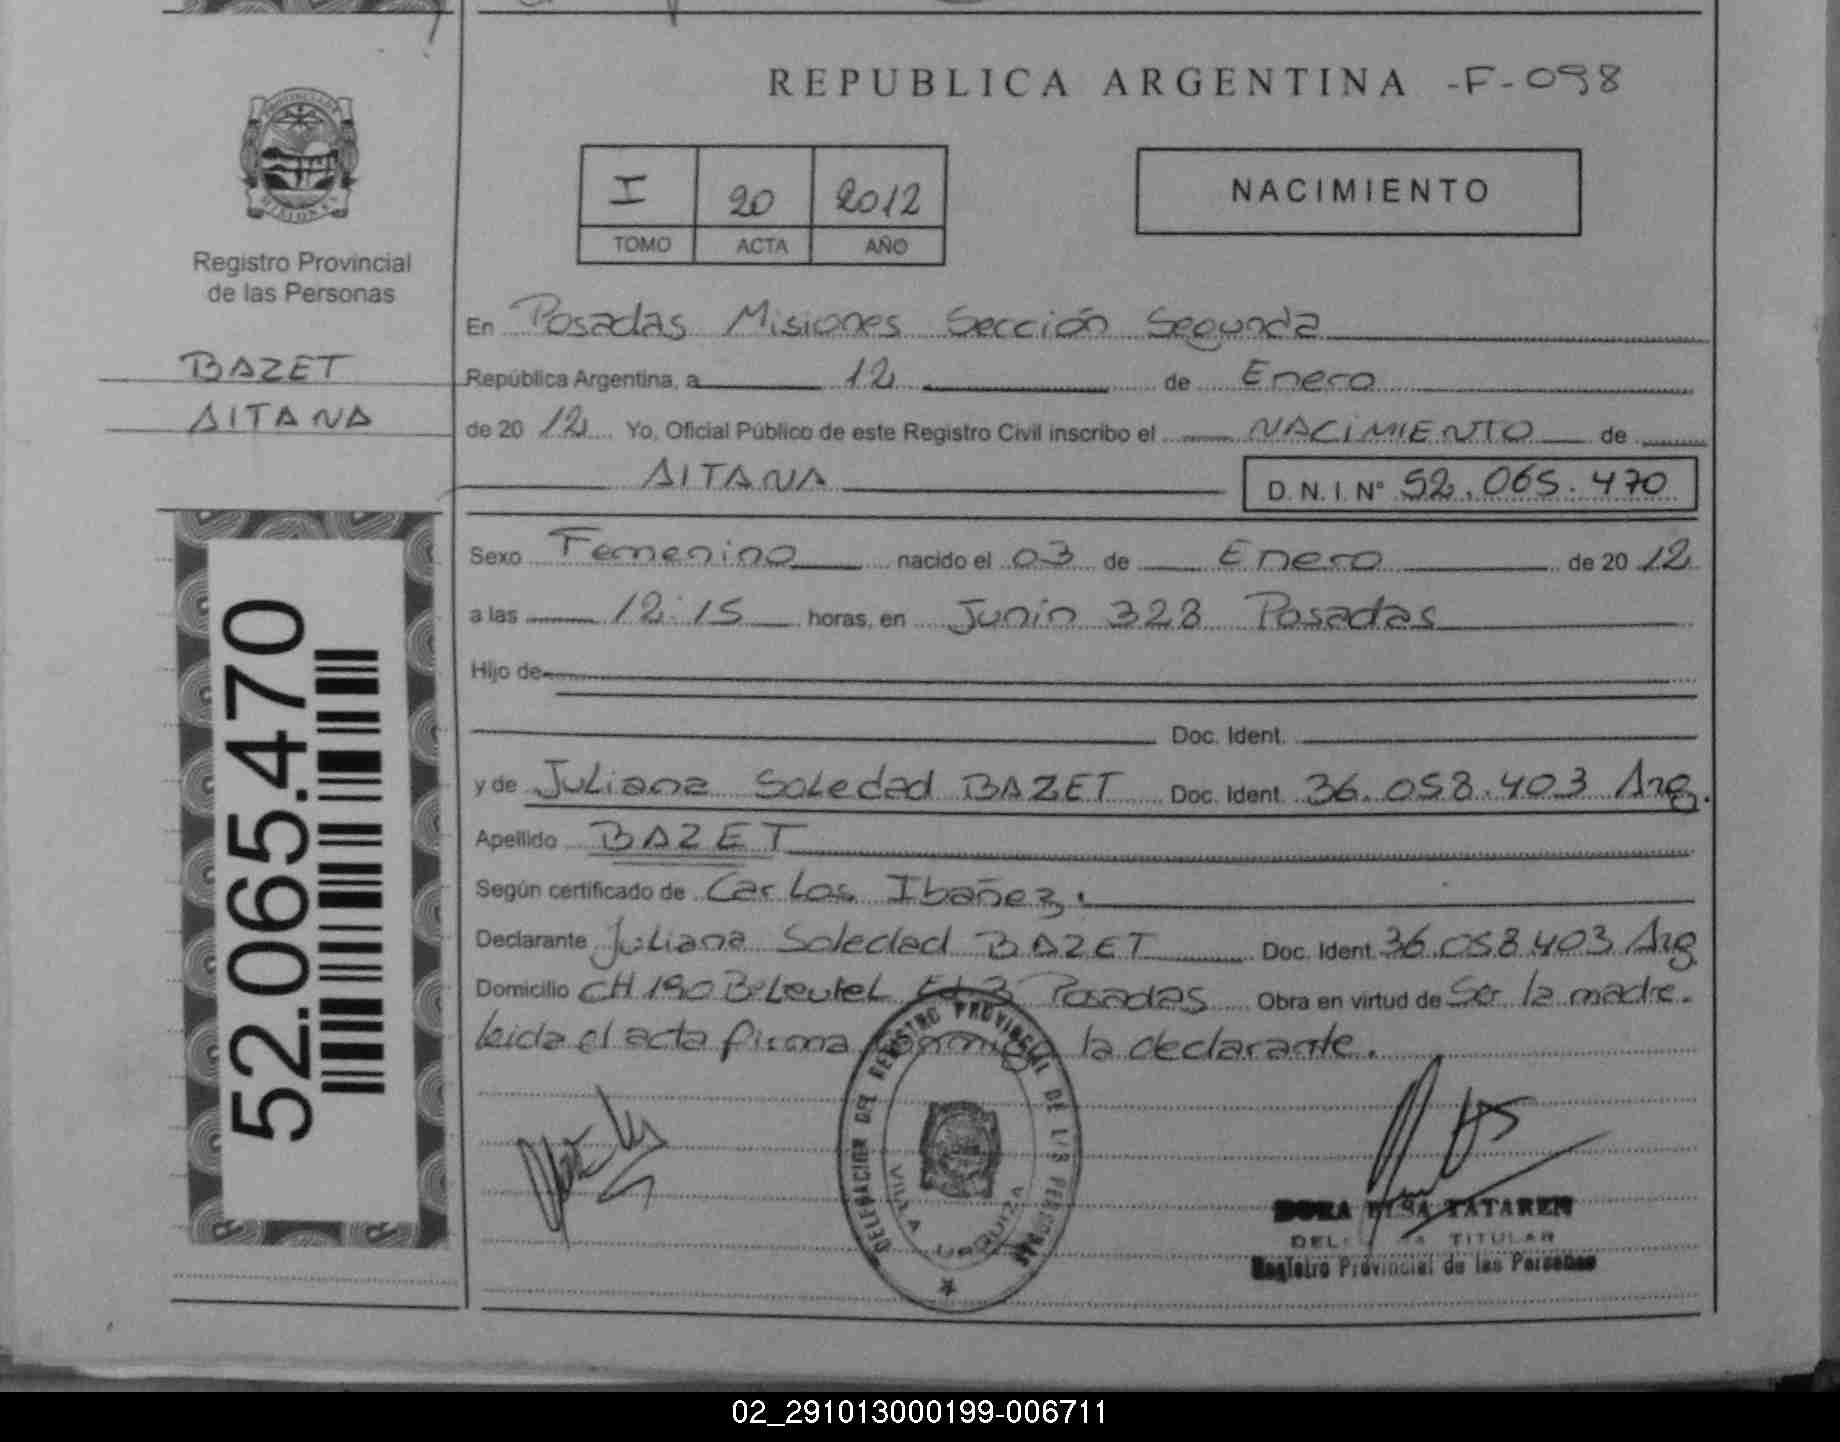 REPUBLICA ARGENTINA -F-098
PROVINCIA DE
MISIONES
Registro Provincial
de las Personas
BAZET
AITANA
52.065.470
I 20 2012
TOMO ACTA AÑO
NACIMIENTO
En Posadas Misiones Sección Segunda
República Argentina, a 12 de Enero
de 20 12 Yo, Oficial Público de este Registro Civil inscribo el NACIMIENTO de
AITANA D.N.I. N° 52.065.470
Sexo Femenino nacido el 03 de Enero de 20 12
a las 12:15 horas, en Junin 328 Posadas
Hijo de
Doc. Ident.
y de Juliana Soledad BAZET Doc. Ident. 36.058.403 Arg.
Apellido BAZET
Según certificado de Carlos Ibañez.
Declarante Juliana Soledad BAZET Doc. Ident. 36.058.403 Arg
Domicilio CH 190 Posadas Obra en virtud de Ser la madre.
leida el acta firma conmigo la declarante.
DELEGACION DEL REGISTRO PROVINCIAL DE LAS PERSONAS
VILLA URQUIZA
DORA ELSA TATAREN
TITULAR
Registro Provincial de las Personas
02_291013000199-006711